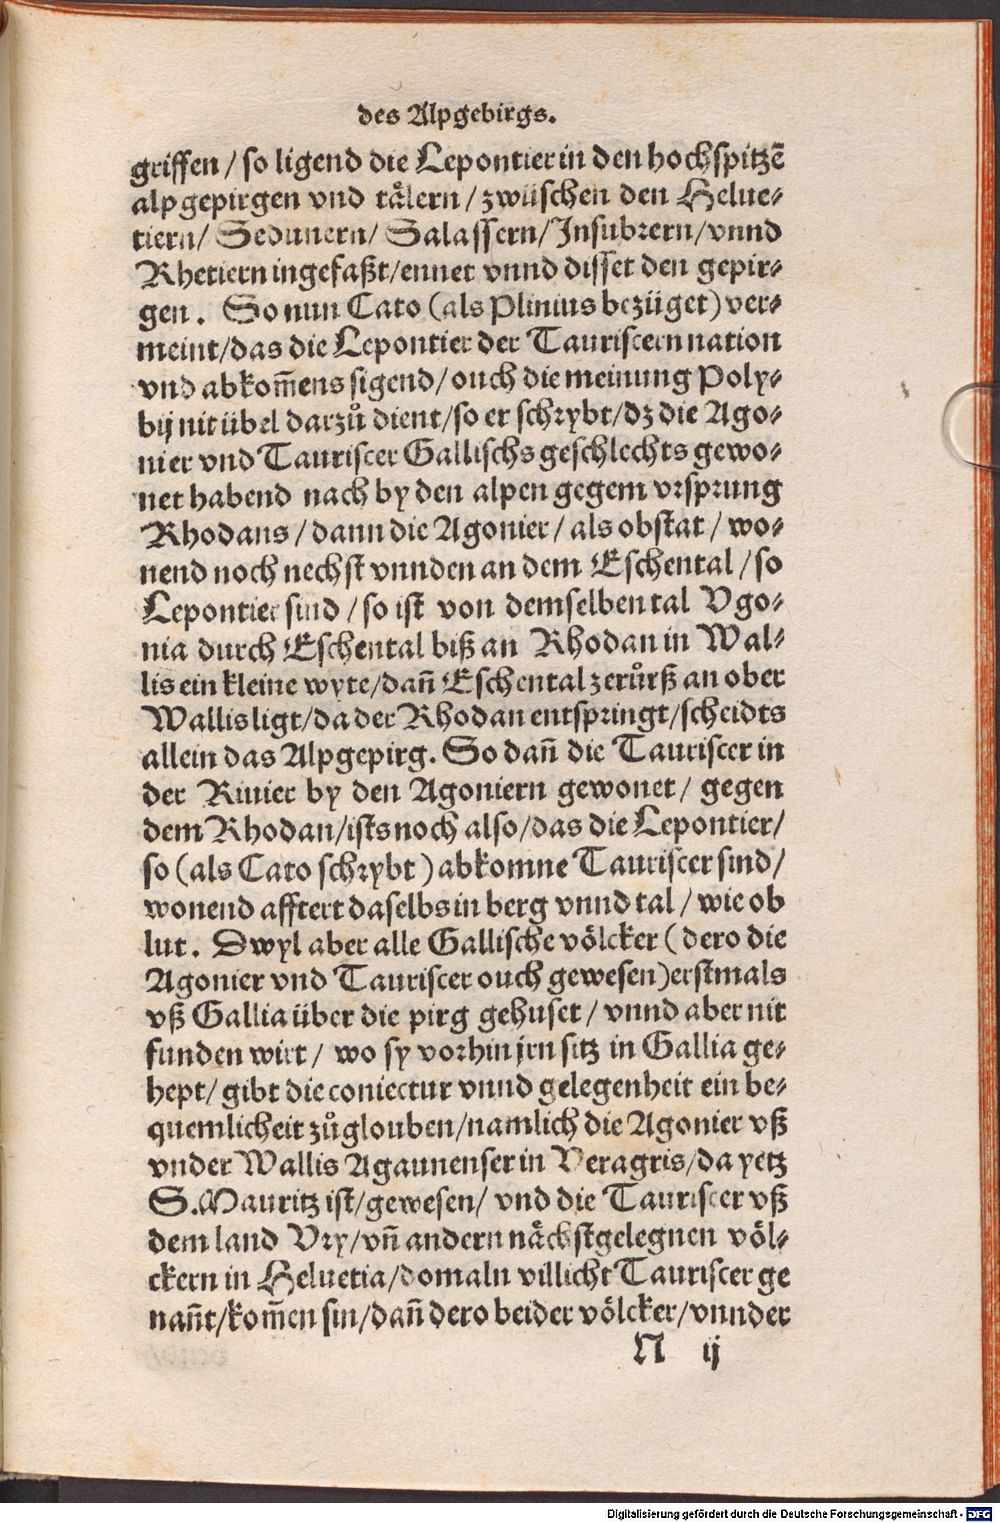 des Alpgebirgs.
griffen / so ligend die Lepontier in den hochspitzē
alpgepirgen vnd tälern / zwüschen den Helue-
tiern / Sedunern / Salassern / Insubrern / vnnd
Rhetiern ingefaßt / ennet vnnd disset den gepir-
gen. So nun Cato (als Plinius bezüget) ver-
meint / das die Lepontier der Tauriscern nation
vnd abkom̄ens sigend / ouch die meinung Poly-
bij nit übel darzů dient / so er schrybt / dz die Ago-
nier vnd Tauriscer Gallischs geschlechts gewo-
net habend nach by den alpen gegem vrsprung
Rhodans / dann die Agonier / als obstat / wo-
nend noch nechst vnnden an dem Eschental / so
Lepontier sind / so ist von demselben tal Vgo-
nia durch Eschental biß an Rhodan in Wal-
lis ein kleine wyte / dan̄ Eschental zerůrß an ober
Wallis ligt / da der Rhodan entspringt / scheidts
allein das Alpgepirg. So dan̄ die Tauriscer in
der Riuier by den Agoniern gewonet / gegen
dem Rhodan / ists noch also / das die Lepontier /
so (als Cato schrybt) abkomne Tauriscer sind /
wonend afftert daselbs in berg vnnd tal / wie ob
lut. Dwyl aber alle Gallische völcker (dero die
Agonier vnd Tauriscer ouch gewesen) erstmals
vß Gallia über die pirg gehuset / vnnd aber nit
funden wirt / wo sy vorhin jrn sitz in Gallia ge-
hept / gibt die coniectur vnnd gelegenheit ein be-
quemlicheit zůglouben / namlich die Agonier vß
vnder Wallis Agaunenser in Veragris / da yetz
S. Mauritz ist / gewesen / vnd die Tauriscer vß
dem land Vry / vn̄ andern nächstgelegnen völ-
ckern in Heluetia / domaln villicht Tauriscer ge
nan̄t / kom̄en sin / dan̄ dero beider völcker / vnnder
N ij
Digitalisierung gefördert durch die Deutsche Forschungsgemeinschaft - DFG